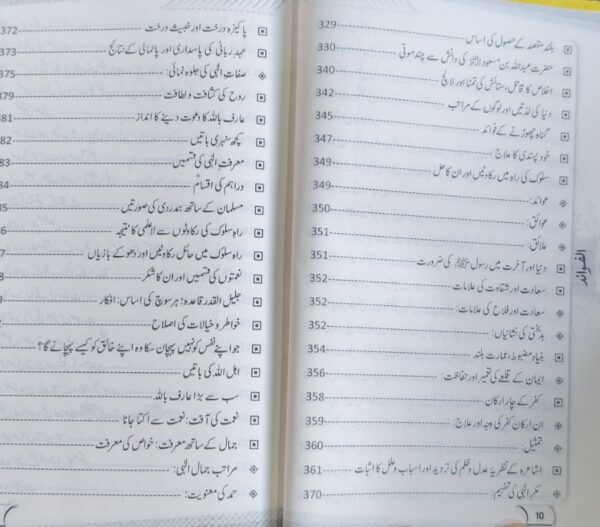 بلند مقصد کے حصول کی اساس 329
حضرت عبداللہ بن مسعود رضی اللہ عنہ کی دانش سے چند موتی 330
اخلاص کا قاتل، ستائش کی تمنا اور لالچ 340
دنیا کی لذتیں اور لوگوں کے مراتب 342
گناہ چھوڑنے کے فوائد 345
خود پسندی کا علاج 347
سلوک کی راہ میں رکاوٹیں اور ان کا حل 349
عوائد: 349
عوائق: 350
علائق: 351
دنیا اور آخرت میں رسول ﷺ کی ضرورت 351
سعادت اور شقاوت کی علامات 352
سعادت اور فلاح کی علامات: 352
بدبختی کی نشانیاں: 352
بنیاد مضبوط، عمارت بلند 354
ایمان کے قلعے کی تعمیر اور حفاظت: 356
کفر کے چار ارکان 358
ان ارکان کفر کی وجہ اور علاج: 359
تمثیل: 360
اشاعرہ کے نظریۂ عدل و ظلم کی تردید اور اسباب و علل کا اثبات 361
مکر الٰہی کی تفہیم: 370
الفوائد
10
پاکیزہ درخت اور خبیث درخت 372
عہد ربانی کی پاسداری اور پامالی کے نتائج 373
صفات الٰہی کی جلوہ نمائی: 375
روح کی کثافت و لطافت 379
عارف باللہ کا دعوت دینے کا انداز 81
کچھ سنہری باتیں 82
معرفت الٰہی کی قسمیں 83
دراہم کی اقسام 84
مسلمان کے ساتھ ہمدردی کی صورتیں
راہ سلوک کی رکاوٹوں سے لاعلمی کا نتیجہ
راہ سلوک میں حائل رکاوٹیں اور دھوکے بازیاں
نعمتوں کی قسمیں اور ان کا شکر
جلیل القدر قاعدہ: ہر سوچ کی اساس: افکار
خواطر و خیالات کی اصلاح
جو اپنے نفس کو نہیں پہچان سکا وہ اپنے خالق کو کیسے پہچانے گا؟
اہل اللہ کی باتیں
سب سے بڑا عارف باللہ
نعمت کی آفت: نعمت سے اکتا جانا
جمال کے ساتھ معرفت: خواص کی معرفت
مراتب جمال الٰہی:
حمد کی معنویت: